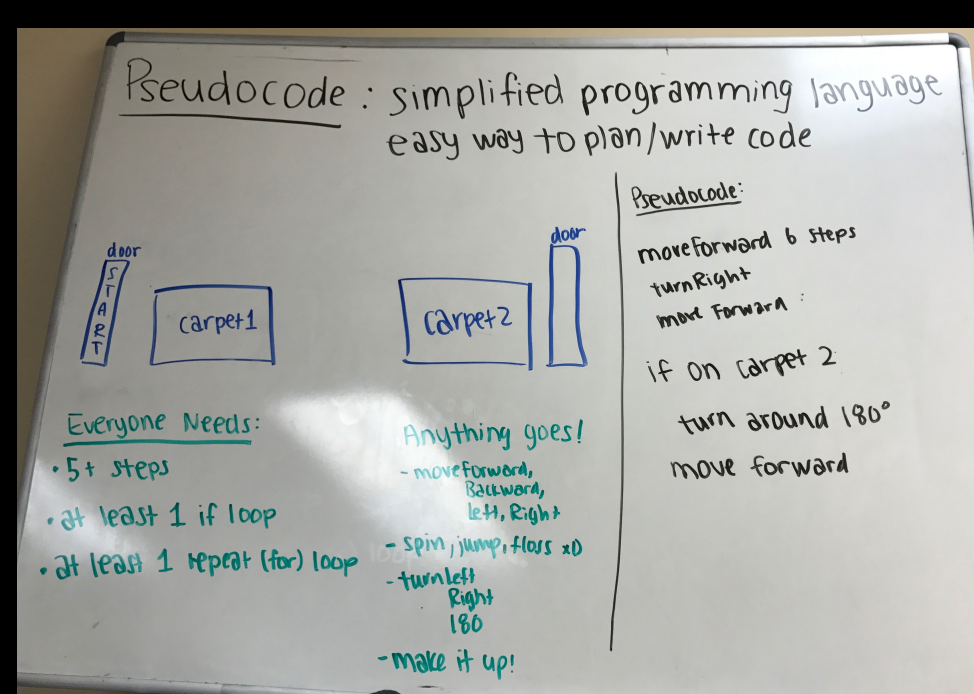 Pseudocode: simplified programming language
easy way to plan/write code
door
START
carpet1
carpet2
door
Everyone Needs:
• 5+ steps
• at least 1 if loop
• at least 1 repeat (for) loop
Anything goes!
- moveForward,
Backward,
left, Right
- spin, jump, floss xD
- turnLeft
Right
180
- make it up!
Pseudocode:
moveForward 6 steps
turnRight
move Forward
if on carpet 2
turn around 180°
move forward